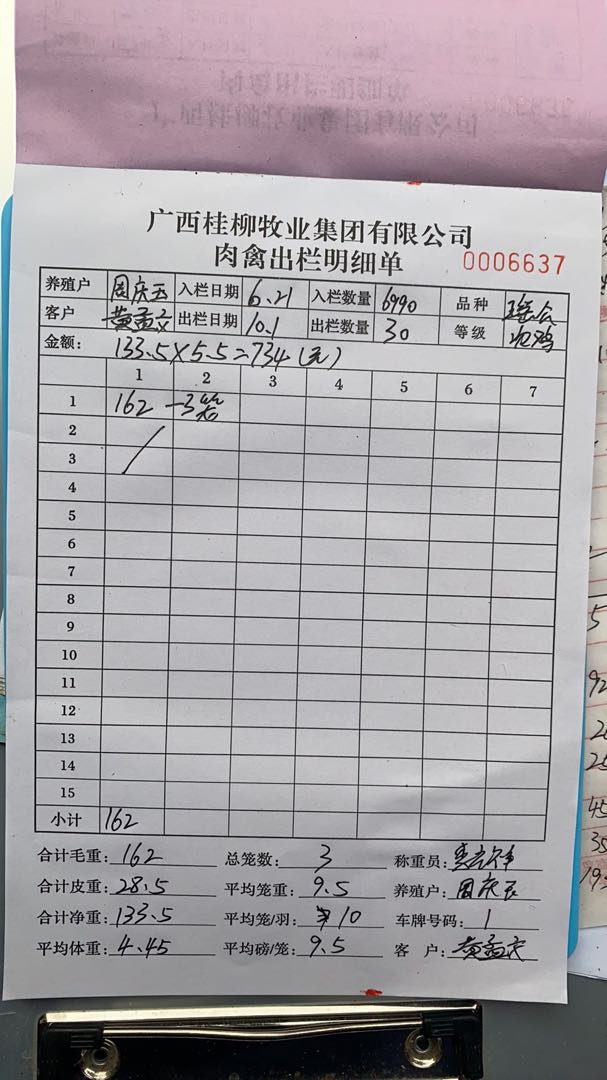 广西桂柳牧业集团有限公司
肉禽出栏明细单 0006637
养殖户 周庆玉 入栏日期 6.21 入栏数量 6990 品种
客户 黄孟文 出栏日期 10.1 出栏数量 30 等级
金额: 133.5×5.5=734(元)
1 2 3 4 5 6 7
1 162 -3笼
2
3
4
5
6
7
8
9
10
11
12
13
14
15
小计 162
合计毛重: 162 总笼数: 3 称重员:
合计皮重: 28.5 平均笼重: 9.5 养殖户: 周庆玉
合计净重: 133.5 平均笼/羽: 10 车牌号码: 1
平均体重: 4.45 平均磅/笼: 9.5 客户: 黄孟文